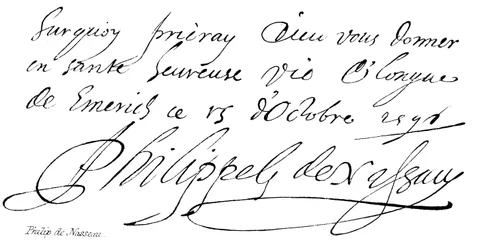 Surquoy priëray Dieu vous donner
en santé heureuse vie & longue
de Emerich ce 15 d'Octobre 1591
Philippe de Nassau
Philip de Nassau